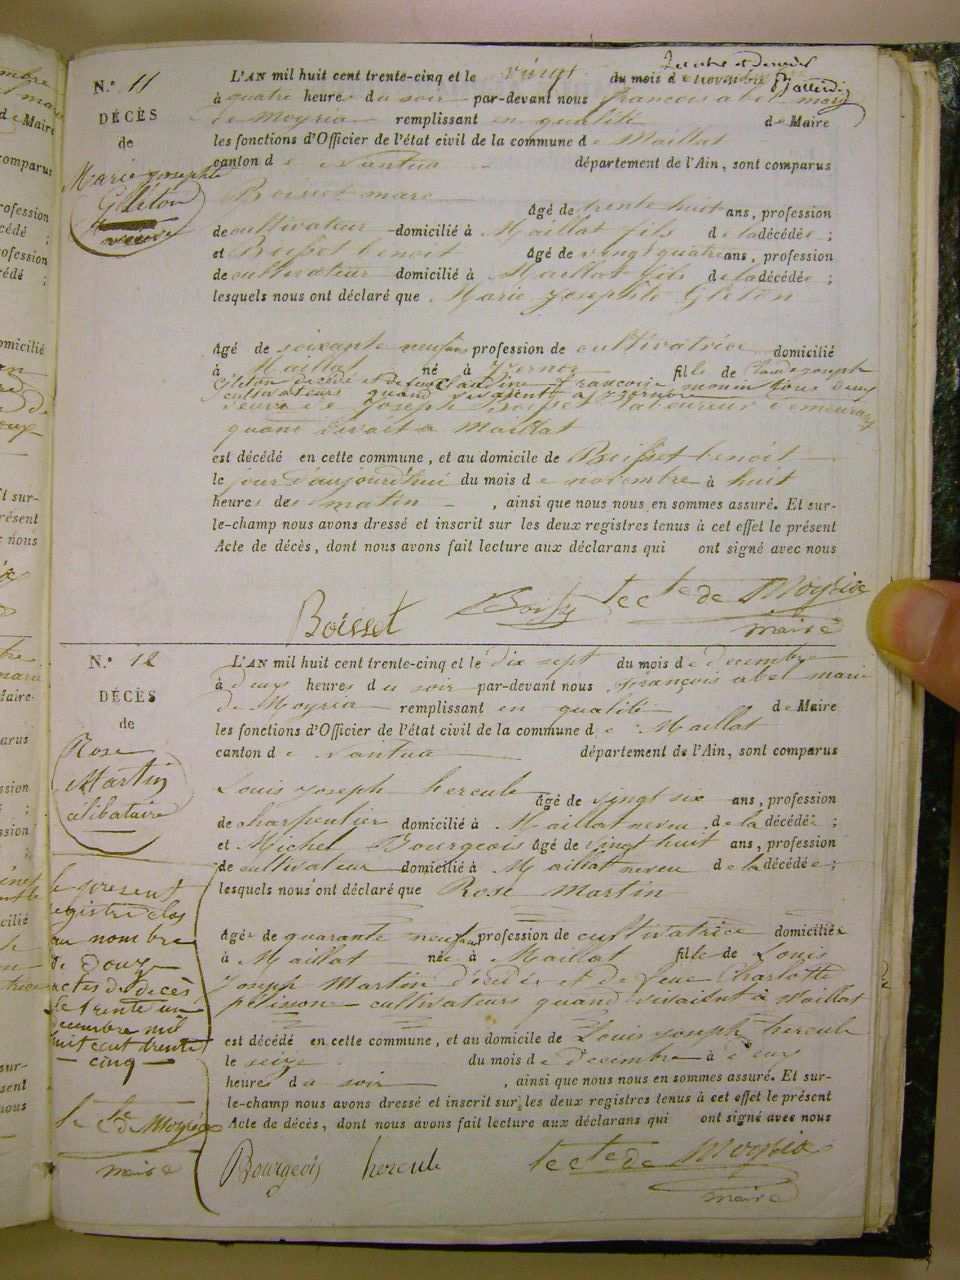 N.° 11
DÉCÈS
de
Marie josephte
Gléton
veuve
L'AN mil huit cent trente-cinq et le vingt du mois de novembre
à quatre heures du soir par-devant nous françois abel marie
de Moyria remplissant en qualité de Maire
les fonctions d'Officier de l'état civil de la commune de Maillat
canton de Nantua département de l'Ain, sont comparus
Boisset marc
Agé de trente huit ans, profession
de cultivateur domicilié à Maillat fils de la décédée ;
et Boisset benoit Agé de vingt quatre ans, profession
de cultivateur domicilié à Maillat fils de la décédée ;
lesquels nous ont déclaré que Marie Josephte Gléton
Agé de soixante neuf ans profession de cultivatrice domicilié
à Maillat né à fille de Claude joseph
Gléton décédé et de feue Claudine françoise monin tous deux
cultivateurs quand vivaient à
veuve de Joseph Boisset laboureur demeurant
quand vivait à Maillat
est décédé en cette commune, et au domicile de Boisset benoit
le jour d'aujourd'hui du mois de novembre à huit
heures des matin , ainsi que nous nous en sommes assuré. Et sur-
le-champ nous avons dressé et inscrit sur les deux registres tenus à cet effet le présent
Acte de décès, dont nous avons fait lecture aux déclarans qui ont signé avec nous
Boisset te de Moyria
maire
N.° 12
DÉCÈS
de
Rose
Martin
célibataire
L'AN mil huit cent trente-cinq et le dix sept du mois de décembre
à deux heures du soir par-devant nous françois abel marie
de Moyria remplissant en qualité de Maire
les fonctions d'Officier de l'état civil de la commune de Maillat
canton de Nantua département de l'Ain, sont comparus
Louis Joseph hercule Agé de vingt six ans, profession
de charpentier domicilié à Maillat neveu de la décédée ;
et Michel Bourgeois Agé de vingt huit ans, profession
de cultivateur domicilié à Maillat neveu de la décédée ;
lesquels nous ont déclaré que Rose Martin
Agée de quarante neuf ans profession de cultivatrice domiciliée
à Maillat née à Maillat fille de Louis
Joseph Martin décédé et de feue Charlotte
pélisson cultivateurs quand vivaient à Maillat
est décédé en cette commune, et au domicile de Louis Joseph hercule
le seize du mois de Décembre à deux
heures du soir , ainsi que nous nous en sommes assuré. Et sur-
le-champ nous avons dressé et inscrit sur les deux registres tenus à cet effet le présent
Acte de décès, dont nous avons fait lecture aux déclarans qui ont signé avec nous
Bourgeois hercule te de Moyria
maire
le present
registre clos
au nombre
de douze
actes de décès
le trente un
décembre mil
huit cent trente
cinq
te de Moyria
maire